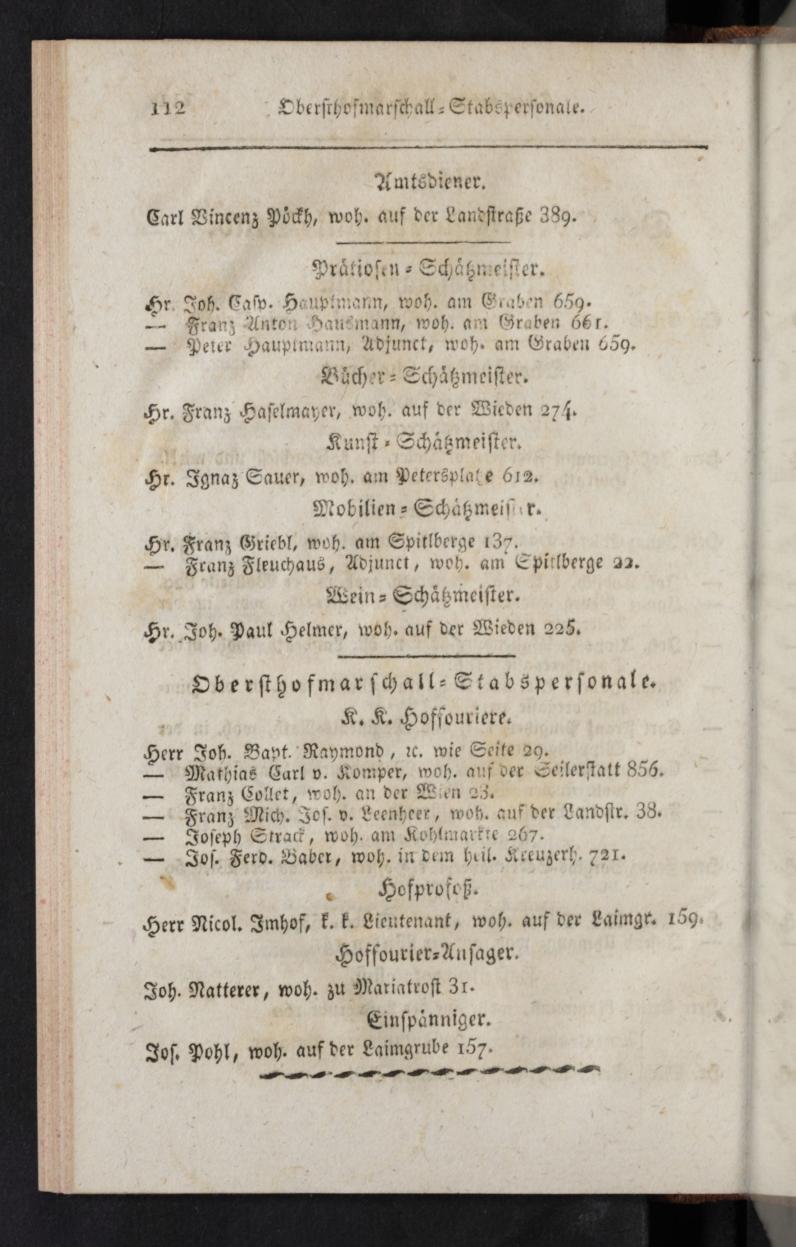 112 Obersthofmarschall-Stabspersonale.
Amtsdiener.
Carl Vincenz Pöckh, woh. auf der Landstraße 389.
Prätiosen-Schätzmeister.
Hr. Joh. Casp. Hauptmann, woh. am Graben 659.
— Franz Anton Hausmann, woh. am Graben 661.
— Peter Hauptmann, Adjunct, woh. am Graben 659.
Bücher-Schätzmeister.
Hr. Franz Haselmayer, woh. auf der Wieden 274.
Kunst-Schätzmeister.
Hr. Ignaz Sauer, woh. am Petersplatze 612.
Mobilien-Schätzmeister.
Hr. Franz Griebl, woh. am Spitlberge 137.
— Franz Fleuchaus, Adjunct, woh. am Spitlberge 22.
Wein-Schätzmeister.
Hr. Joh. Paul Helmer, woh. auf der Wieden 225.
Obersthofmarschall-Stabspersonale.
K. K. Hoffouriere.
Herr Joh. Bapt. Raymond, ꝛc. wie Seite 29.
— Mathias Carl v. Komper, woh. auf der Seilerstatt 856.
— Franz Collet, woh. an der Wien 23.
— Franz Mich. Jos. v. Leenheer, woh. auf der Landstr. 38.
— Joseph Strack, woh. am Kohlmarkte 267.
— Jos. Ferd. Baber, woh. in dem heil. Kreuzerh. 721.
Hofprofoß.
Herr Nicol. Imhof, k. k. Lieutenant, woh. auf der Laimgr. 159.
Hoffourier-Ansager.
Joh. Natterer, woh. zu Mariatrost 31.
Einspänniger.
Jos. Pohl, woh. auf der Laimgrube 157.